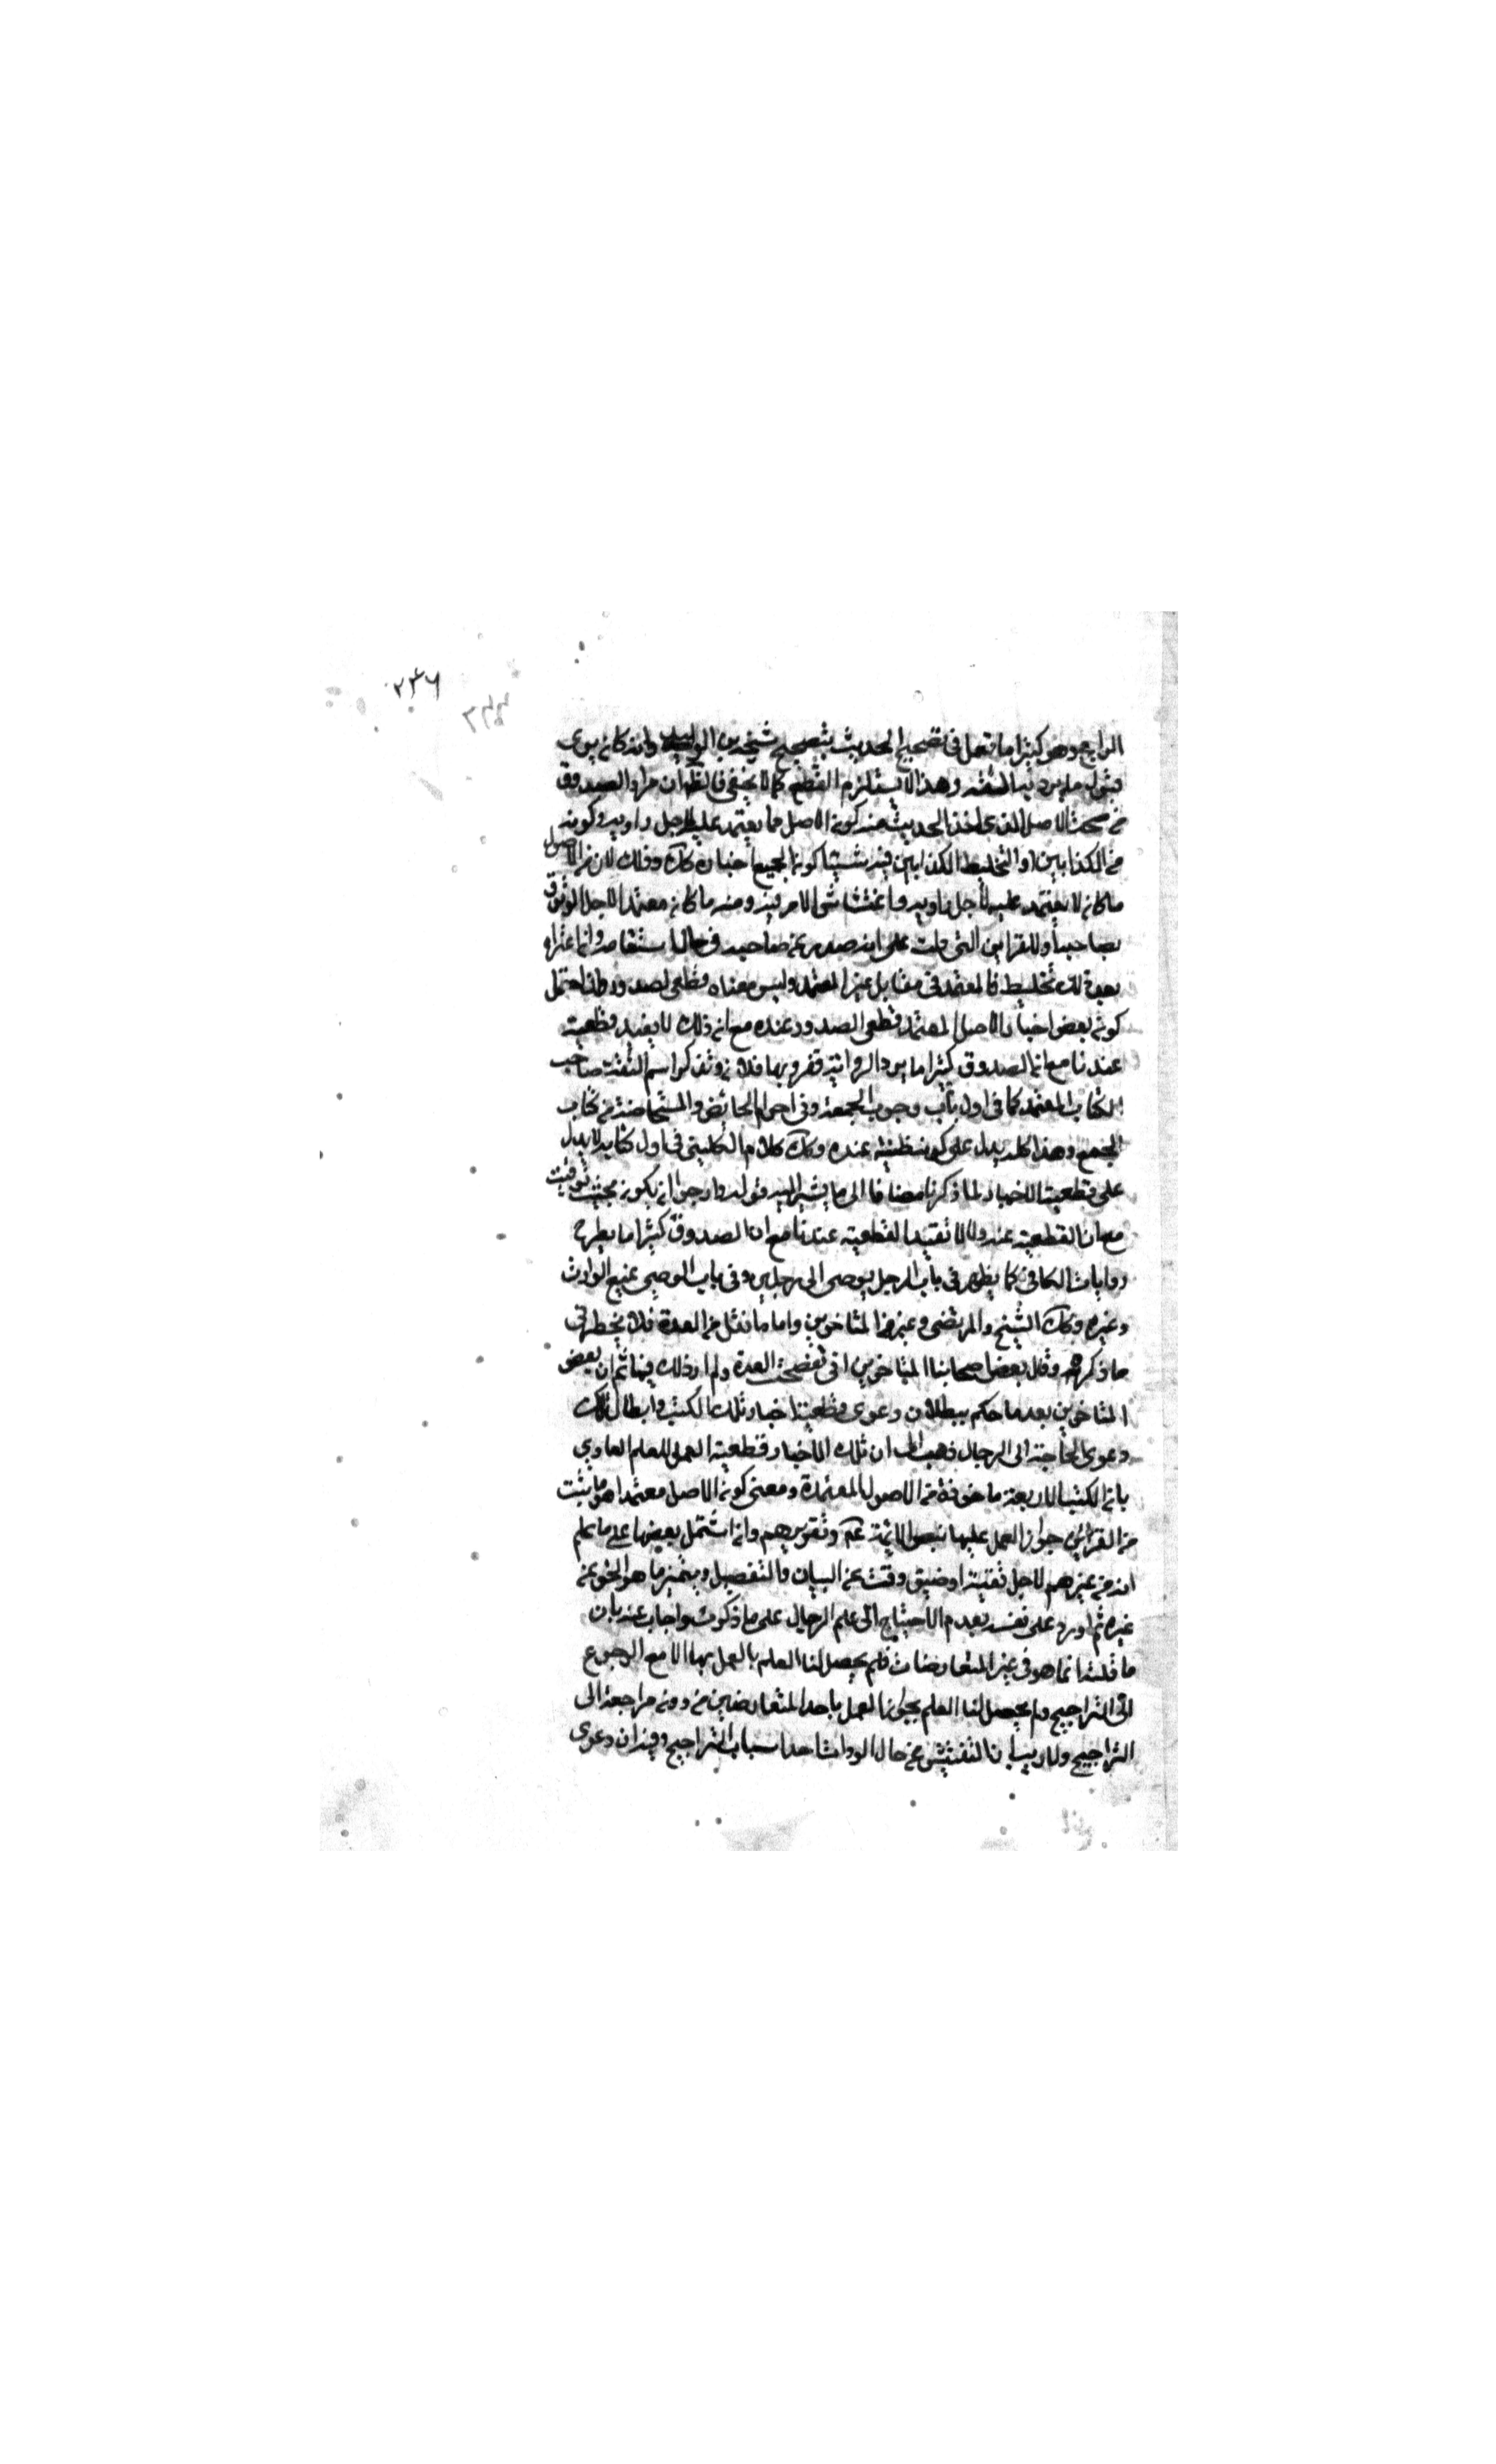 ٢٣٦
الراجح وهو كثيرا ما تعمل في تصحيح الحديث بتصحيح شيخه بن الوليد وانه كان يروى
فيقول ما يرد به الثقة وهذا لا يستلزم القطع كما لا يخفى فالظ ان مراد الصدوق
من صحة الاصل الذى اخذ الحديث منه كون الاصل مما يعتمد عليه لاجل راويه وكونه
من الكذابين او التخليط الكذابين فيه شيئا كون الجميع اخباره كك وذلك لان من الاصول
ما كان لا يعتمد عليه لاجل راويه واغتشاش الامر فيه ومنه ما كان معتمدا لاجل الوثوق
بصاحبه او للقراين التى دلت على انه صدر عن صاحبه فى حال استقامته وان اعتراه
بعد ذلك تخليط فالمعتمد فى مقابل غير المعتمد وليس معناه قطعى الصدور وان احتمل
كون بعض اخبار الاصل المعتمد قطعى الصدور عنده مع ان ذلك لا يفيد قطعيته
عندنا مع ان الصدوق كثيرا ما يرد الرواية تفرد بها فلان وقد ذكر اسم الثقة صاحب
الكتاب المعتمد كما فى اول باب وجوب الجمعة وفى احرام الحائض والمستحاضة من كتاب
الحج وهذا كله يدل على كونه ظنية عنده وكك كلام الكلينى فى اول كتابه لا يدل
على قطعية الاخبار لما ذكرنا مضافا الى ما يشير اليه قوله وارجو ان يكون بحيث توخيت
مع ان القطعية عنده لا تفيد القطعية عندنا مع ان الصدوق كثيرا ما يطرح
روايات الكافى كما يظهر فى باب الرجل يوصى الى رجلين وفى باب الوصى يمنع الوارث
وغيره وكك الشيخ والمرتضى وغيرهما من المتاخرين واما ما نقل من العدة فلا يخطر فى
ما ذكره وقال بعض اصحابنا المتاخرين انى تفحصت العدة ولم ار ذلك فيها ثم ان بعض
المتاخرين بعد ما حكم ببطلان دعوى قطعية اخبار تلك الكتب وابطال تلك
دعوى الحاجة الى الرجال ذهب الى ان تلك الاخبار قطعية العمل للعلم العادى
بان الكتب الاربعة ماخوذة من الاصول المعتمدة ومعنى كون الاصل معتمدا هو ما ثبت
من القراين جواز العمل عليها بنص الائمة عم وتقريرهم وان اشتمل بعضها على ما علم
انه من غيرهم لاجل تقية او ضيق وقت عن البيان والتفصيل وتميز ما هو الحق عن
غيره ثم اورد على نفسه بعدم الاحتياج الى علم الرجال على ما ذكرت واجاب عنه بان
ما قلته انما هو فى غير المتعارضات فلم يحصل لنا العلم بالعمل بها الا مع الرجوع
الى التراجيح ولم يحصل لنا العلم بجواز العمل باحد المتعارضين من دون مراجعة الى
التراجيح ولا ريب ان التفتيش عن حال الرواة احد اسباب التراجيح وفيه ان دعوى